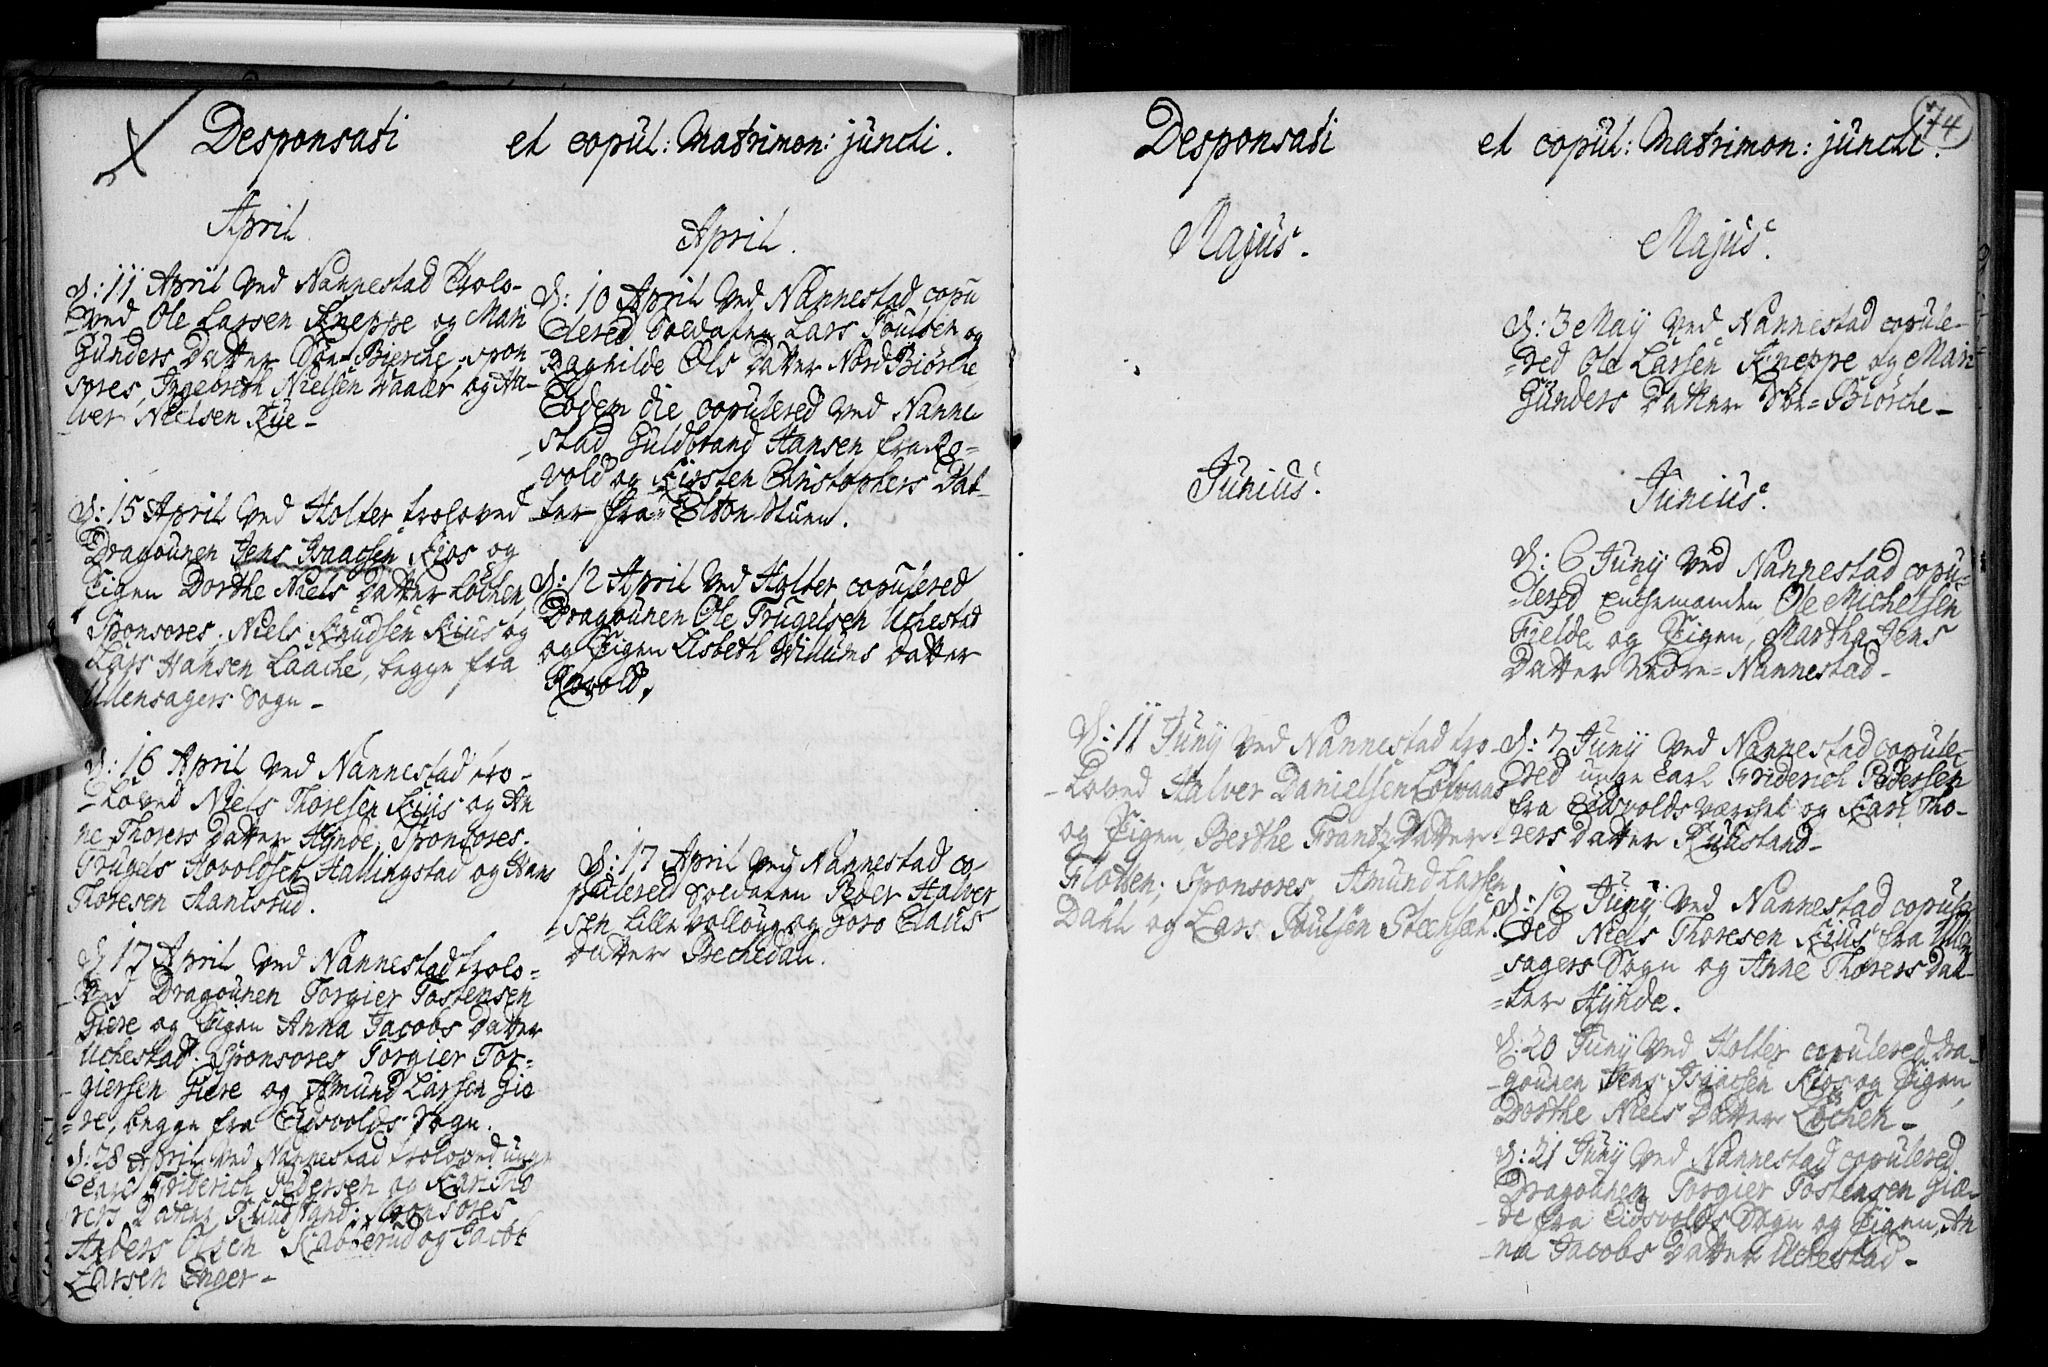 Desponsati et copul: Matrimon: juncti.
April
d: 11 April ved Nannestad Trolo-
ved Ole Larsen Kneppe og Mari
Gunders Datter Sør-Biørche, spon
sores, Ingebreth Nielsen Waaler og Hal-
wer Nielsen Rue-
d: 15 April ved Holter troloved
Dragounen Jens Isaacsen Kios og
Pigen Dorthe Niels Datter Løchen,
Sponsores, Niels Knudsen Kius og
Lars Hansen Laache, begge fra
Ullensagers Sogn-
d: 16 April ved Nannestad tro-
loved Niels Thoresen Kius og An
ne Thorers Datter Hynde, Sponsores.
Trugels Hovoldsen Hallingstad og Hans
Thoresen Aamstud.
d 17 April ved Nannestad trolo-
ved Dragounen Torgier Tostensen
Giere og Pigen Anna Jacobs Datter
Uchestad. Sponsores Torgier Tor-
giersen Giere og Amund Larsen Gie
re, begge fra Eidsvolds Sogn.
d: 28 April ved Nannestad troloved unge
Carl Friderich Pedersen og Kari Tho
rers Datter Ruustand: Sponsores
Anders Olsen Kabberud og Jacob
Larsen Enger-
April.
d: 10 April ved Nannestad copu
lered Soldaten Lars Poulsen og
Raghilde Ols Datter Nord Biørche
Eodem die copulered ved Nanne
stad Guldbrand Hansen fra Ro-
vold og Kirsten Christophers Dat-
ter fra Elton Stuen.
d: 12 April ved Holter copulered
Dragounen Ole Trugelsen Uchestad
og Pigen Lisbeth Willums Datter
Rovold.
d: 17 April ved Nannestad co
pulered Soldaten Peder Halver
sen Lille Wolloug og Goro Claus
Datter Bechedall.
74
Desponsati et copul: Matrimon: juncti.
Majus.
Junius.
d: 11 Juny ved Nannestad tro-
loved Halver Danielsen Colvaas
og Pigen Berthe Frantz Datter
Flotten; Sponsores, Amund Larsen
Dahl og Lars Poulsen Stechset.
Majus.
d: 3 May ved Nannestad copule-
red Ole Larsen Kneppe og Mari
Gunders Datter Sør=Biørche-
Junius.
d: 6 Juny ved Nannestad copu-
lered Enchemanden Ole Michelsen
Fielde og Pigen, Martha Jens
Datter Nedre=Nannestad-
d: 7 Juny ved Nannestad copule-
red unge Carl Friderich Pedersen
fra Eidsvolds Værchet og Kari Tho-
rers Datter Ruustand-
d: 12 Juny ved Nannestad copule
red Niels Thoresen Kius fra Ullen
sagers Sogn og Anne Thorers Dat-
ter Hynde.
d: 20 Juny ved Holter copulered Dra-
gounen Jens Isaacsen Kios og Pigen,
Dorthe Niels Datter Løchen-
d: 21 Juny ved Nannestad copulered
Dragounen Torgier Tostensen Gie-
re fra Eidsvolds Sogn og Pigen, An
na Jacobs Datter Uchestad-